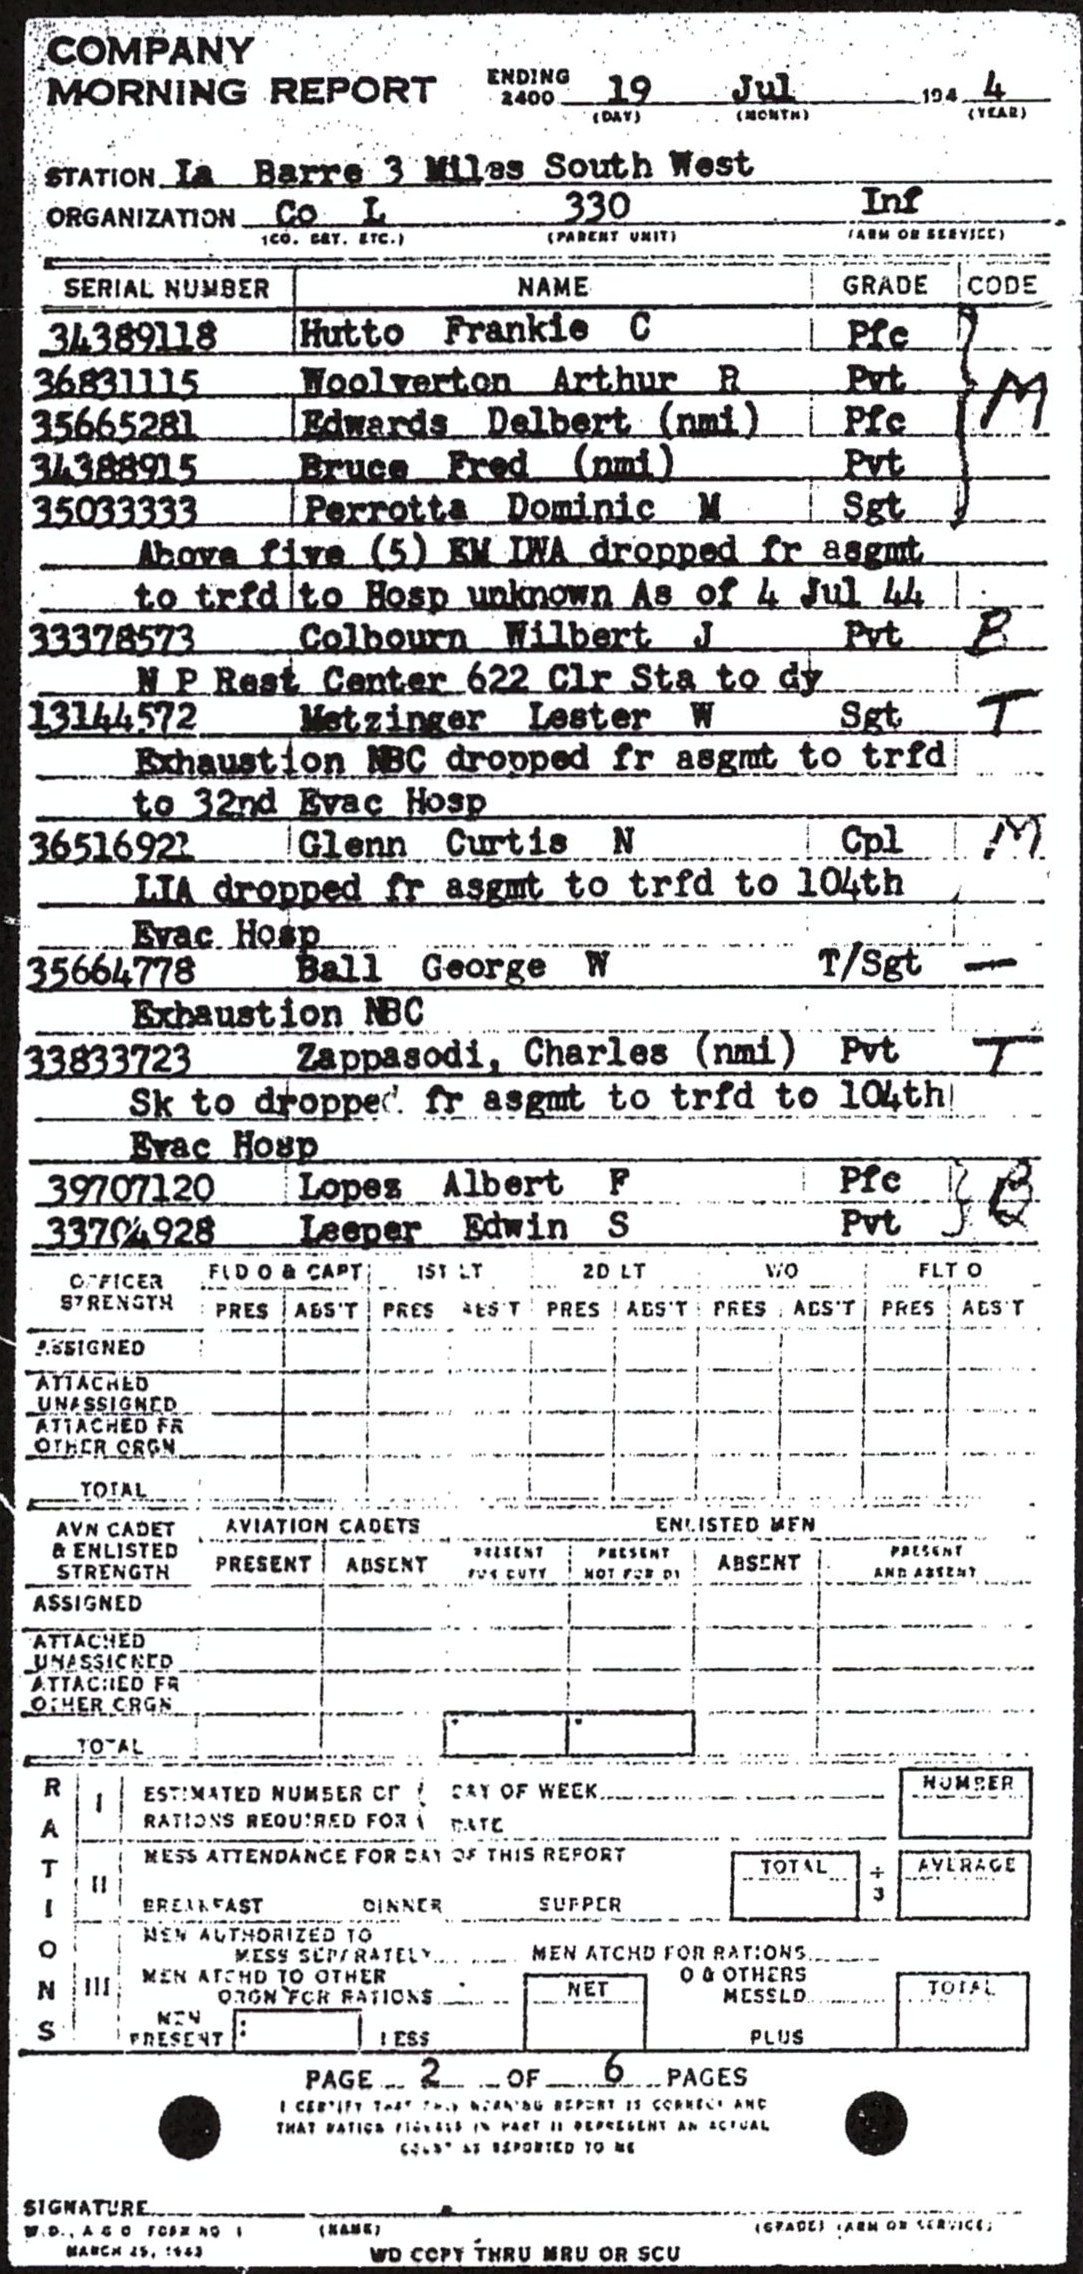 COMPANY
MORNING REPORT ENDING 2400 19 Jul 194 4
(DAY) (MONTH) (YEAR)
STATION La Barre 3 Miles South West
ORGANIZATION Co L 330 Inf
(CO. BAT. ETC.) (PARENT UNIT) (ARM OR SERVICE)
SERIAL NUMBER NAME GRADE CODE
34389118 Hutto Frankie C Pfc
36831115 Woolverton Arthur R Pvt M
35665281 Edwards Delbert (nmi) Pfc
34388915 Bruce Fred (nmi) Pvt
35033333 Perrotta Dominic M Sgt
Above five (5) EM LWA dropped fr asgmt
to trfd to Hosp unknown As of 4 Jul 44
33378573 Colbourn Wilbert J Pvt B
N P Rest Center 622 Clr Sta to dy
13144572 Metzinger Lester W Sgt T
Exhaustion NBC dropped fr asgmt to trfd
to 32nd Evac Hosp
36516921 Glenn Curtis N Cpl M
LIA dropped fr asgmt to trfd to 104th
Evac Hosp
35664778 Ball George W T/Sgt —
Exhaustion NBC
33833723 Zappasodi, Charles (nmi) Pvt T
Sk to dropped fr asgmt to trfd to 104th
Evac Hosp
39707120 Lopez Albert F Pfc B
33704928 Leeper Edwin S Pvt
OFFICER STRENGTH FLD O & CAPT 1ST LT 2D LT WO FLT O
PRES ABS'T PRES ABS'T PRES ABS'T PRES ABS'T PRES ABS'T
ASSIGNED
ATTACHED
UNASSIGNED
ATTACHED FR
OTHER ORGN
TOTAL
AVN CADET & ENLISTED STRENGTH AVIATION CADETS ENLISTED MEN
PRESENT ABSENT PRESENT FOR DUTY PRESENT NOT FOR DY ABSENT PRESENT AND ABSENT
ASSIGNED
ATTACHED
UNASSIGNED
ATTACHED FR
OTHER ORGN
TOTAL
RATIONS
I ESTIMATED NUMBER OF DAY OF WEEK NUMBER
RATIONS REQUIRED FOR DATE
II MESS ATTENDANCE FOR DAY OF THIS REPORT TOTAL ÷ 3 AVERAGE
BREAKFAST DINNER SUPPER
III MEN AUTHORIZED TO
MESS SEPARATELY MEN ATCHD FOR RATIONS
MEN ATCHD TO OTHER
ORGN FOR RATIONS NET O & OTHERS MESSED TOTAL
MEN PRESENT LESS PLUS
PAGE 2 OF 6 PAGES
I CERTIFY THAT THIS MORNING REPORT IS CORRECT AND
THAT RATION FIGURES IN PART II REPRESENT AN ACTUAL
COUNT AS REPORTED TO ME
SIGNATURE
(NAME) (GRADE) (ARM OR SERVICE)
W.D., A G O FORM NO 1
MARCH 25, 1943
WD COPY THRU MRU OR SCU